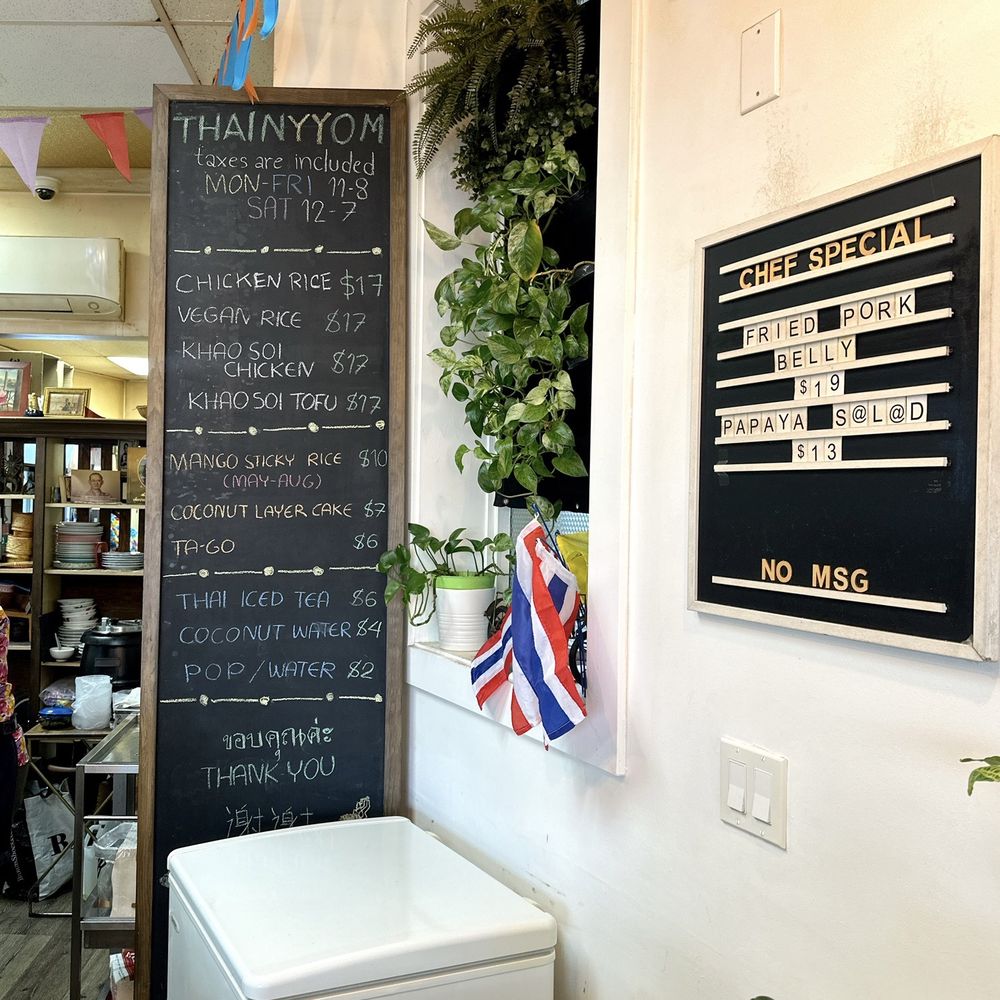 THAINYYOM
taxes are included
MON-FRI 11-8
SAT 12-7
CHICKEN RICE $17
VEGAN RICE $17
KHAO SOI
CHICKEN $17
KHAO SOI TOFU $17
MANGO STICKY RICE $10
(MAY-AUG)
COCONUT LAYER CAKE $7
TA-GO $6
THAI ICED TEA $6
COCONUT WATER $4
POP/WATER $2
ขอบคุณค่ะ
THANK YOU
謝謝
CHEF SPECIAL
FRIED PORK
BELLY
$19
PAPAYA S@L@D
$13
NO MSG